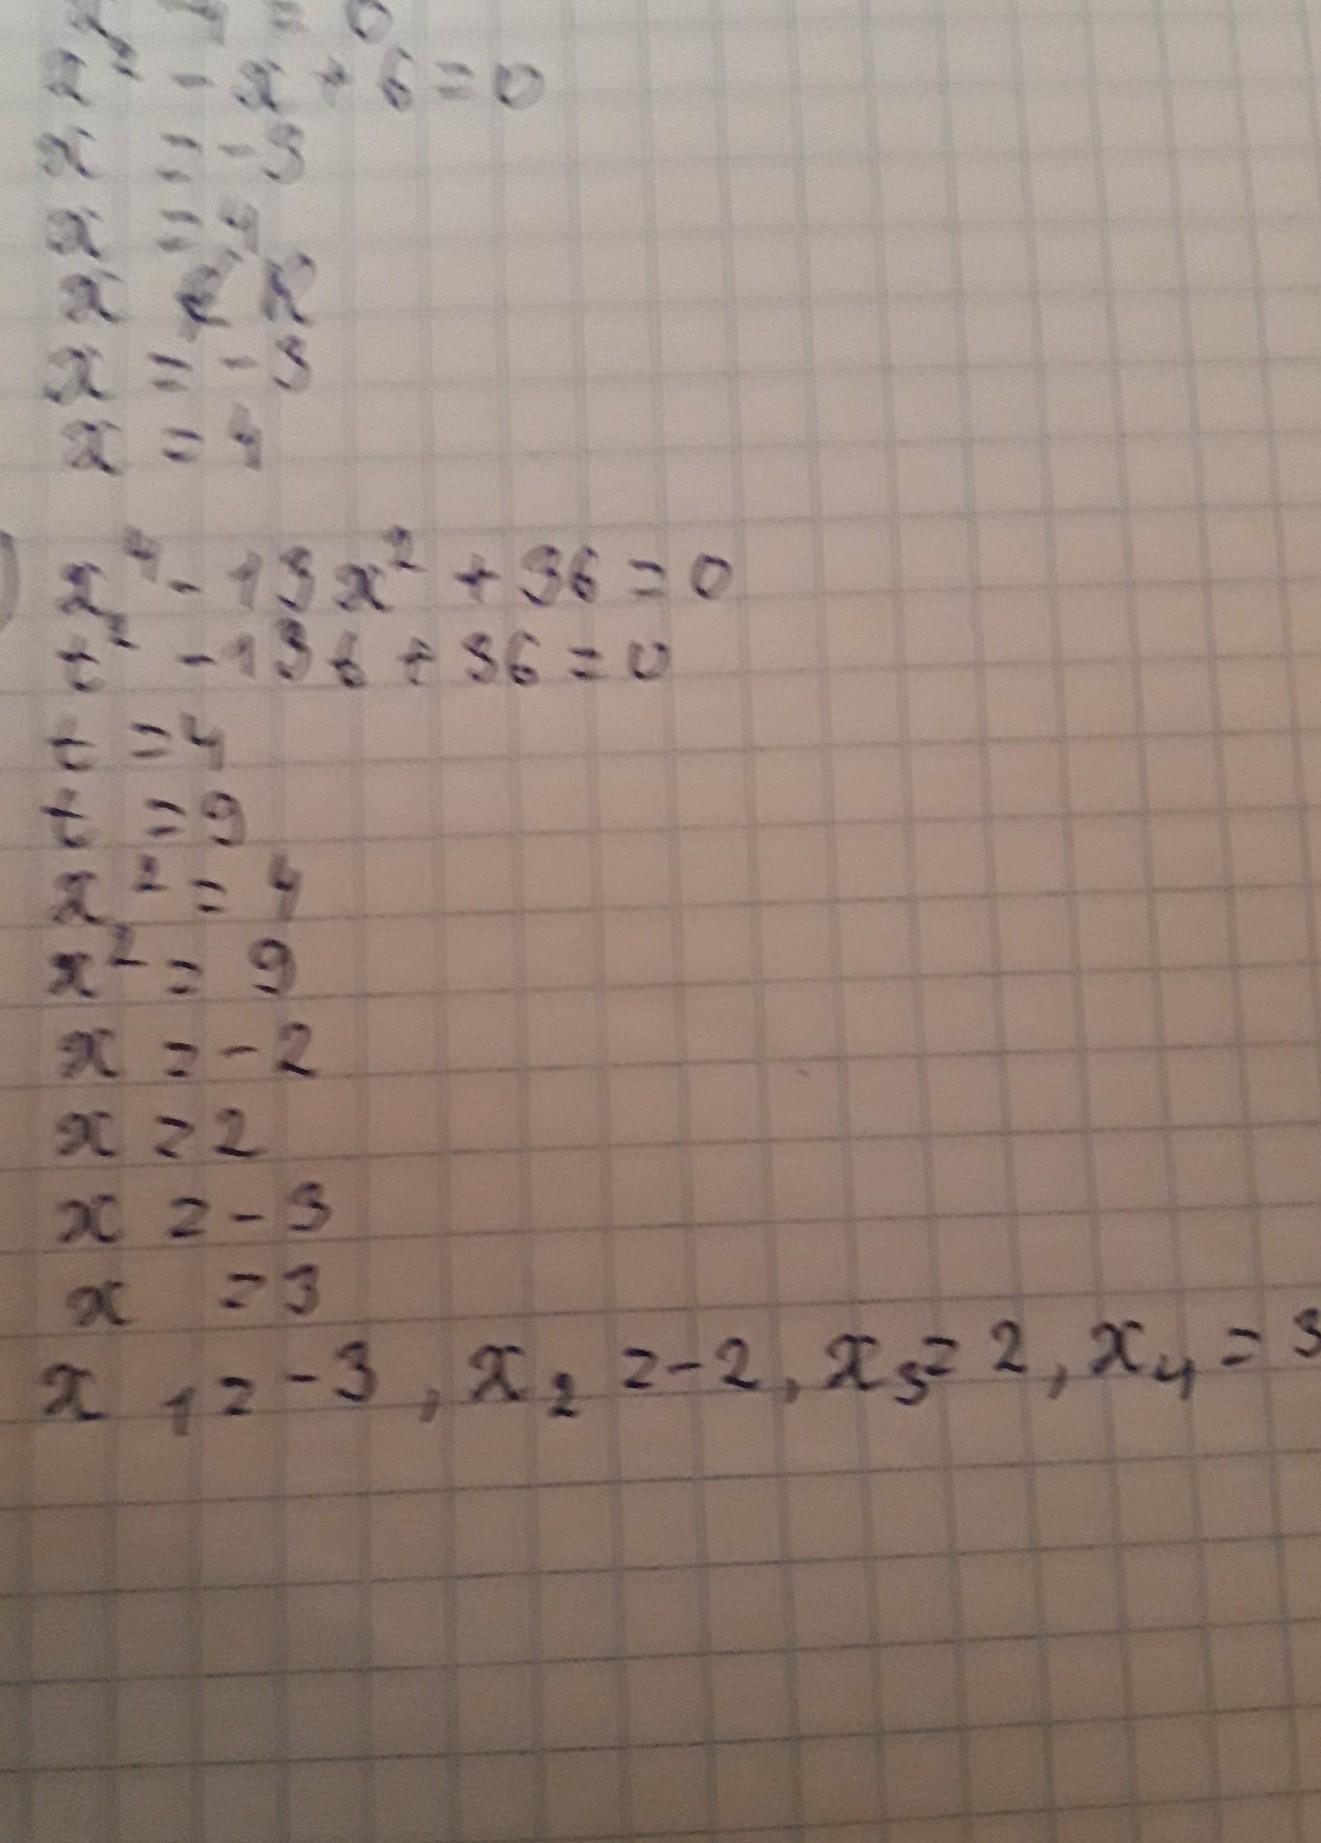 x² - x + 6 = 0
x = -3
x = 4
x ∉ R
x = -3
x = 4
) x⁴ - 13x² + 36 = 0
t² - 13t + 36 = 0
t = 4
t = 9
x² = 4
x² = 9
x = -2
x = 2
x = -3
x = 3
x₁ = -3, x₂ = -2, x₃ = 2, x₄ = 3